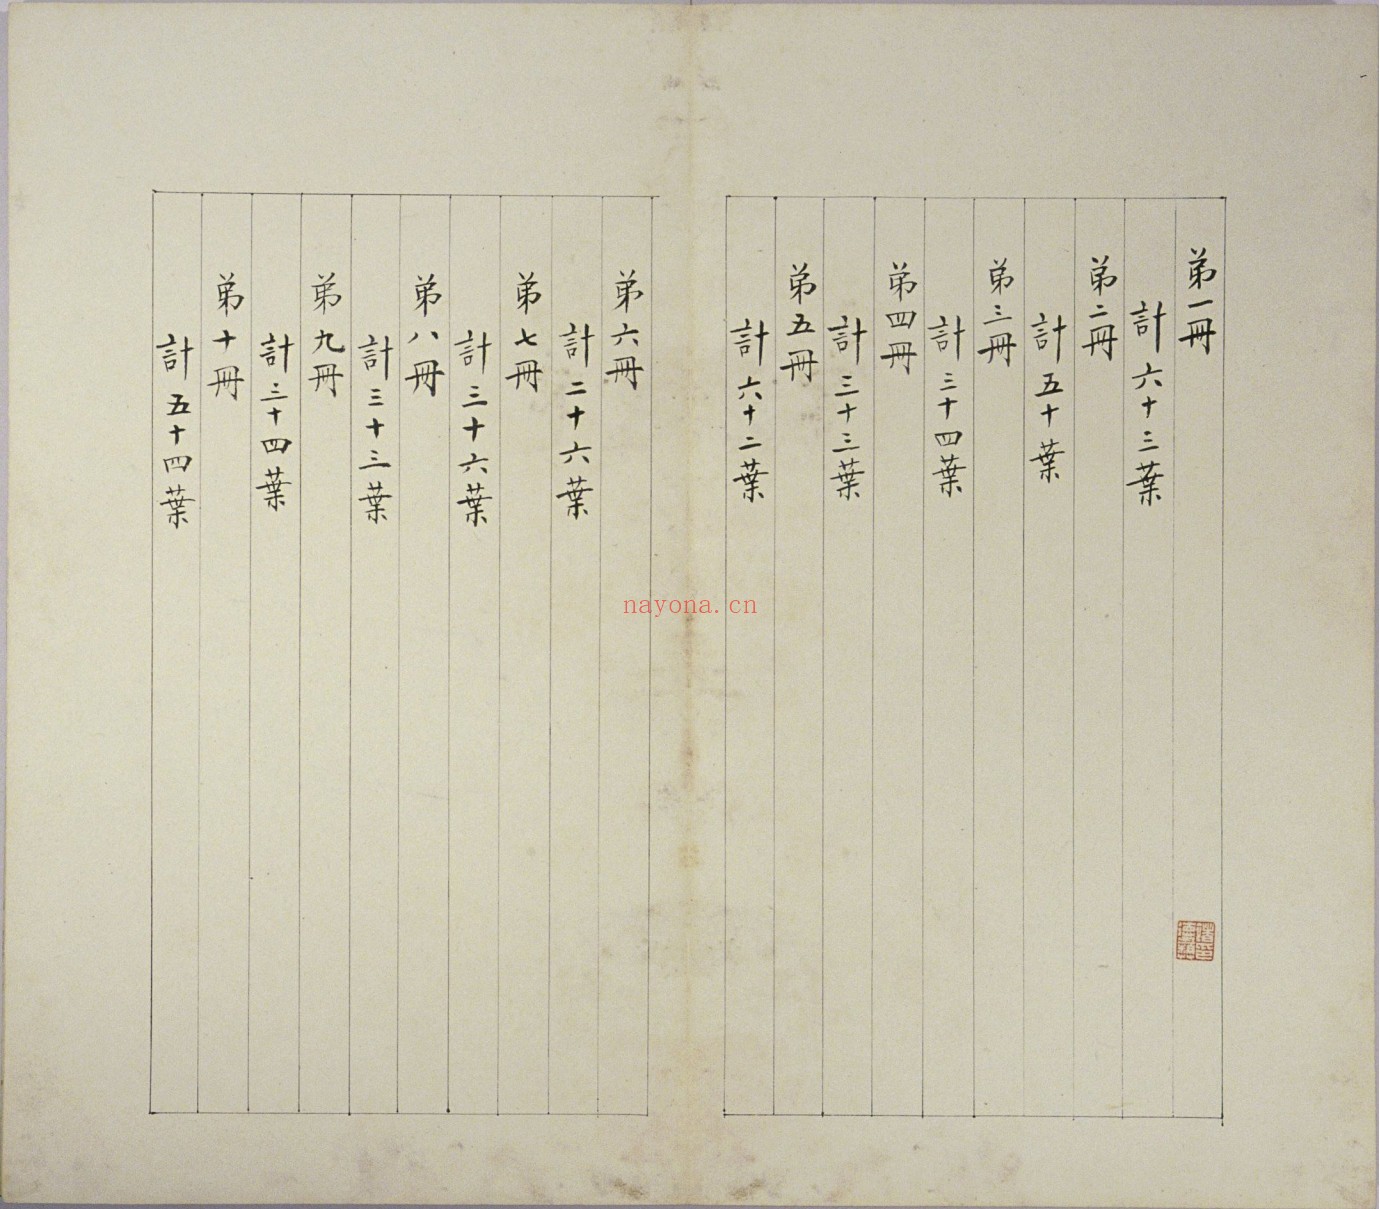 弟一冊
計六十三葉
弟二冊
計五十葉
弟三冊
計三十四葉
弟四冊
計三十三葉
弟五冊
計六十二葉
弟六冊
計二十六葉
弟七冊
計三十六葉
弟八冊
計三十三葉
弟九冊
計三十四葉
弟十冊
計五十四葉
nayona.cn